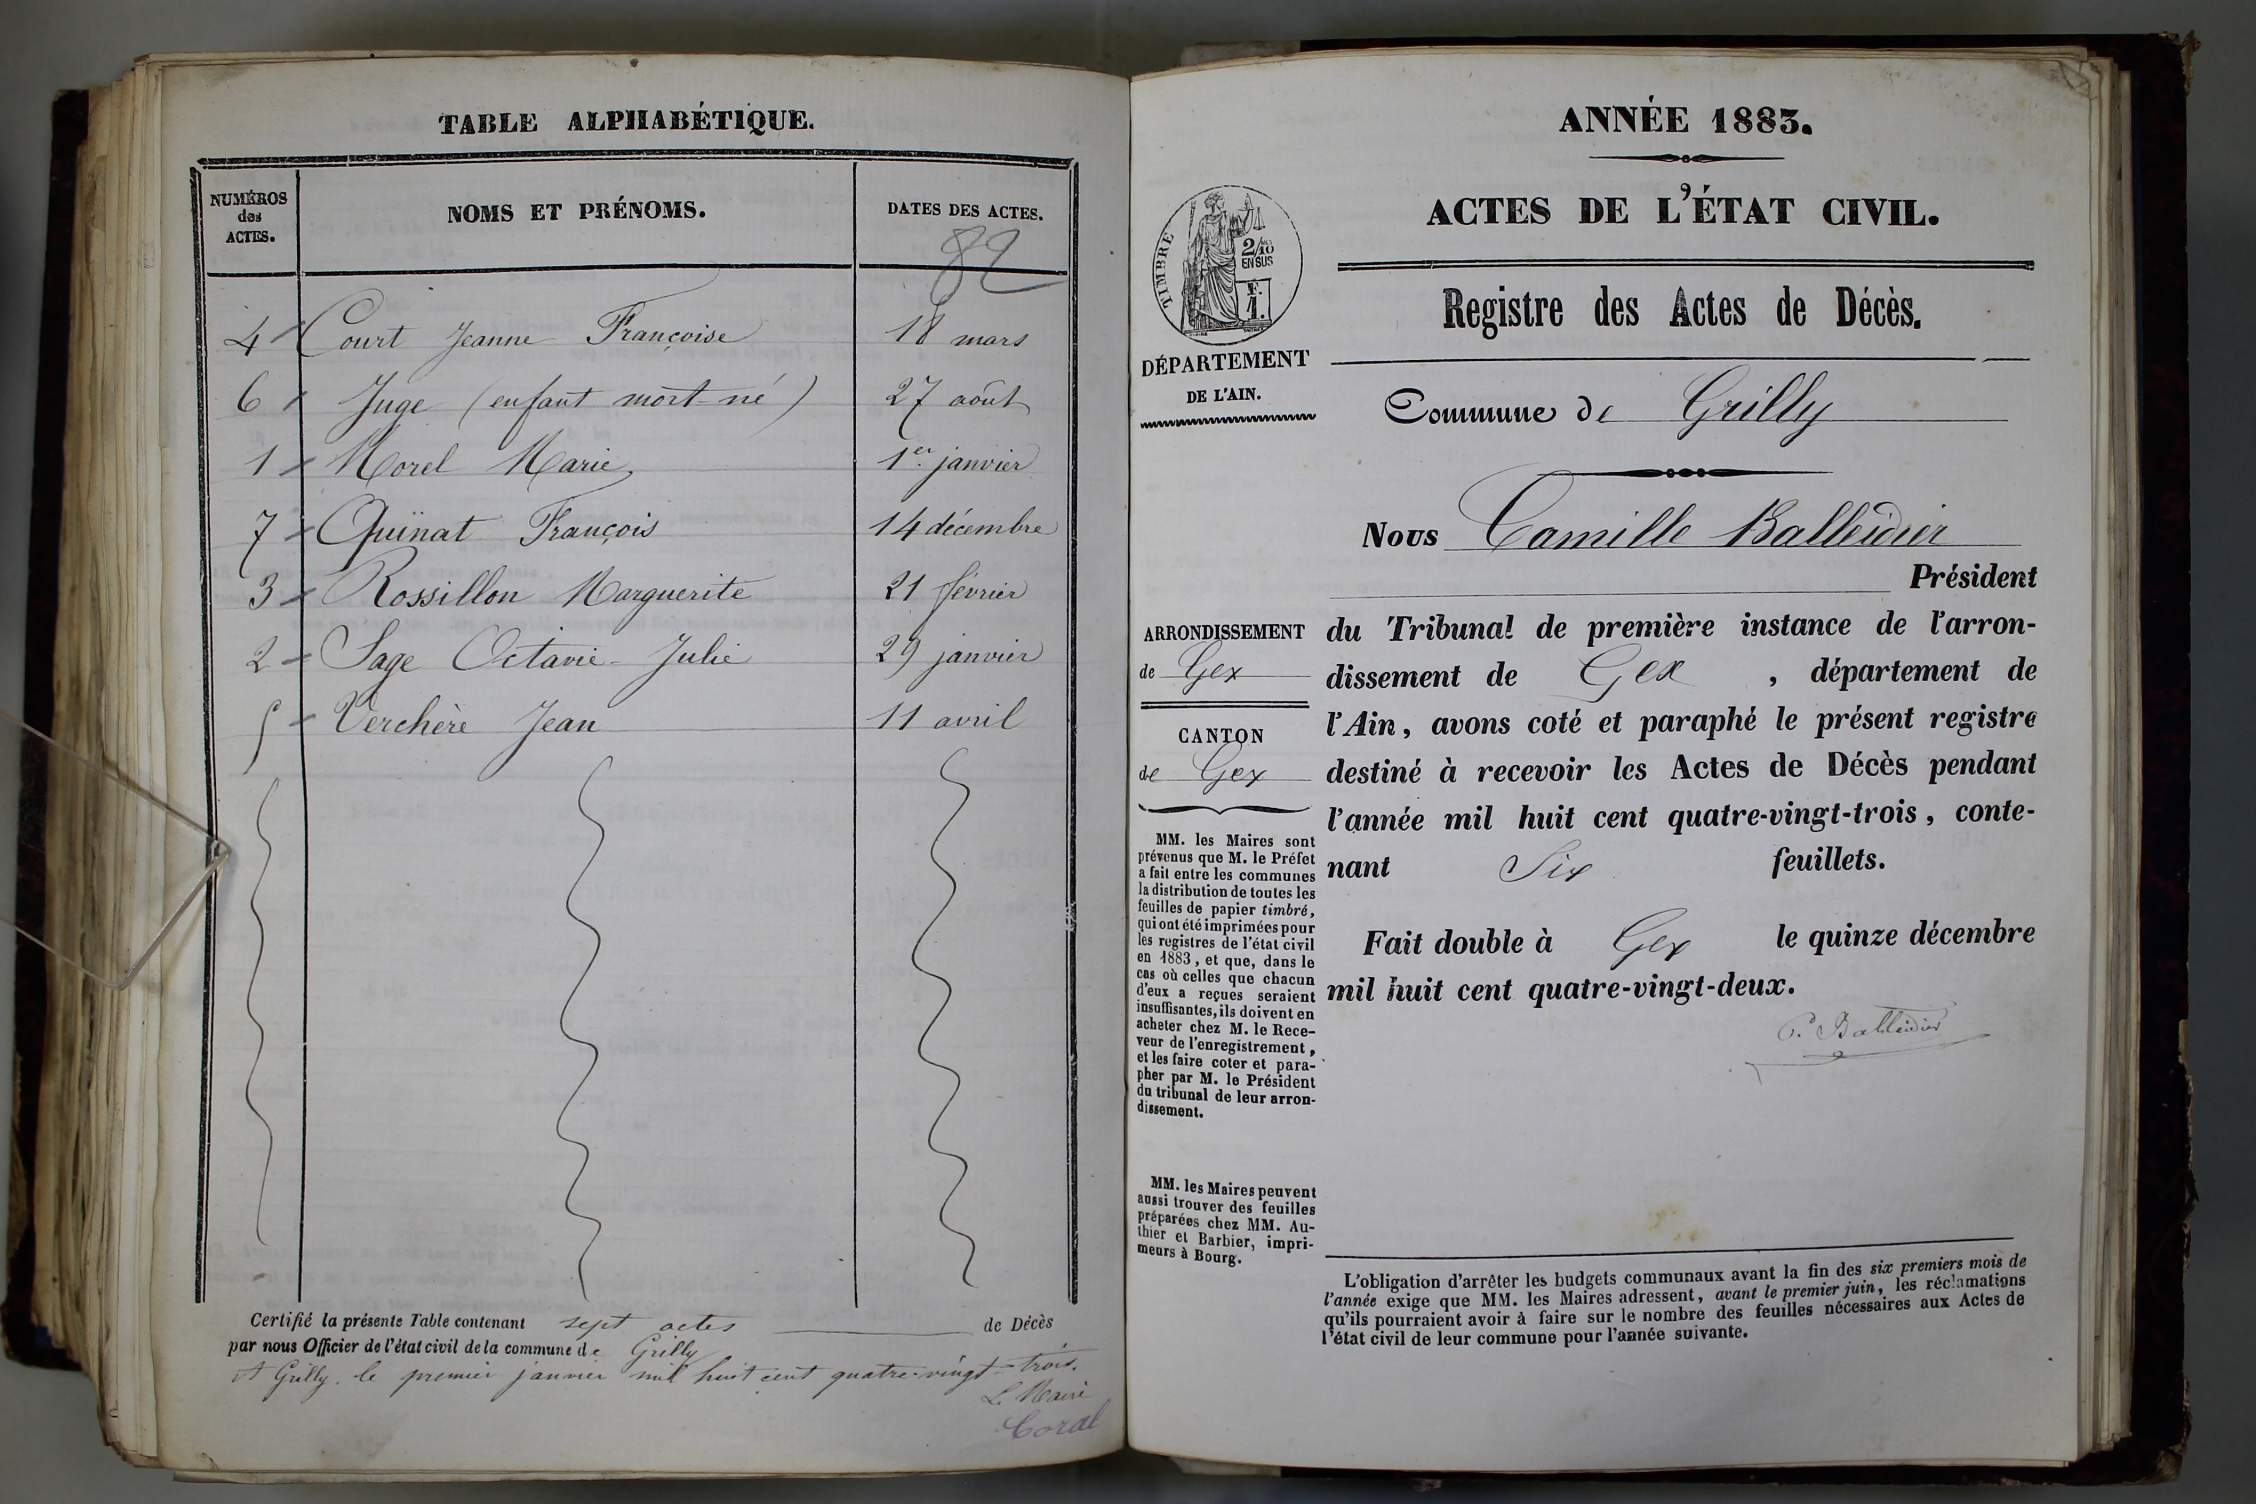 TABLE ALPHABÉTIQUE.
NUMÉROS
des
ACTES.
NOMS ET PRÉNOMS.
DATES DES ACTES.
82
4 Court Jeanne Françoise 18 mars
6 Juge (enfant mort-né) 27 août
1 Morel Marie 1er janvier
7 Quinat François 14 décembre
3 Rossillon Marguerite 21 février
2 Sage Octavie-Julie 29 janvier
5 Verchère Jean 11 avril
Certifié la présente Table contenant sept actes de Décès
par nous Officier de l'état civil de la commune de Grilly
A Grilly. le premier janvier mil huit cent quatre-vingt-trois.
Le Maire
Coral
ANNÉE 1883.
ACTES DE L'ÉTAT CIVIL.
TIMBRE
2/10
EN SUS
F.
1.
Registre des Actes de Décès.
DÉPARTEMENT
DE L'AIN.
Commune de Grilly
Nous Camille Balleidier
Président
ARRONDISSEMENT
de Gex
CANTON
de Gex
du Tribunal de première instance de l'arron-
dissement de Gex, département de
l'Ain, avons coté et paraphé le présent registre
destiné à recevoir les Actes de Décès pendant
l'année mil huit cent quatre-vingt-trois, conte-
nant Six feuillets.
Fait double à Gex le quinze décembre
mil huit cent quatre-vingt-deux.
C. Balleidier
MM. les Maires sont
prévenus que M. le Préfet
a fait entre les communes
la distribution de toutes les
feuilles de papier timbré,
qui ont été imprimées pour
les registres de l'état civil
en 1883, et que, dans le
cas où celles que chacun
d'eux a reçues seraient
insuffisantes, ils doivent en
acheter chez M. le Rece-
veur de l'enregistrement,
et les faire coter et para-
pher par M. le Président
du tribunal de leur arron-
dissement.
MM. les Maires peuvent
aussi trouver des feuilles
préparées chez MM. Au-
thier et Barbier, impri-
meurs à Bourg.
L'obligation d'arrêter les budgets communaux avant la fin des six premiers mois de
l'année exige que MM. les Maires adressent, avant le premier juin, les réclamations
qu'ils pourraient avoir à faire sur le nombre des feuilles nécessaires aux Actes de
l'état civil de leur commune pour l'année suivante.